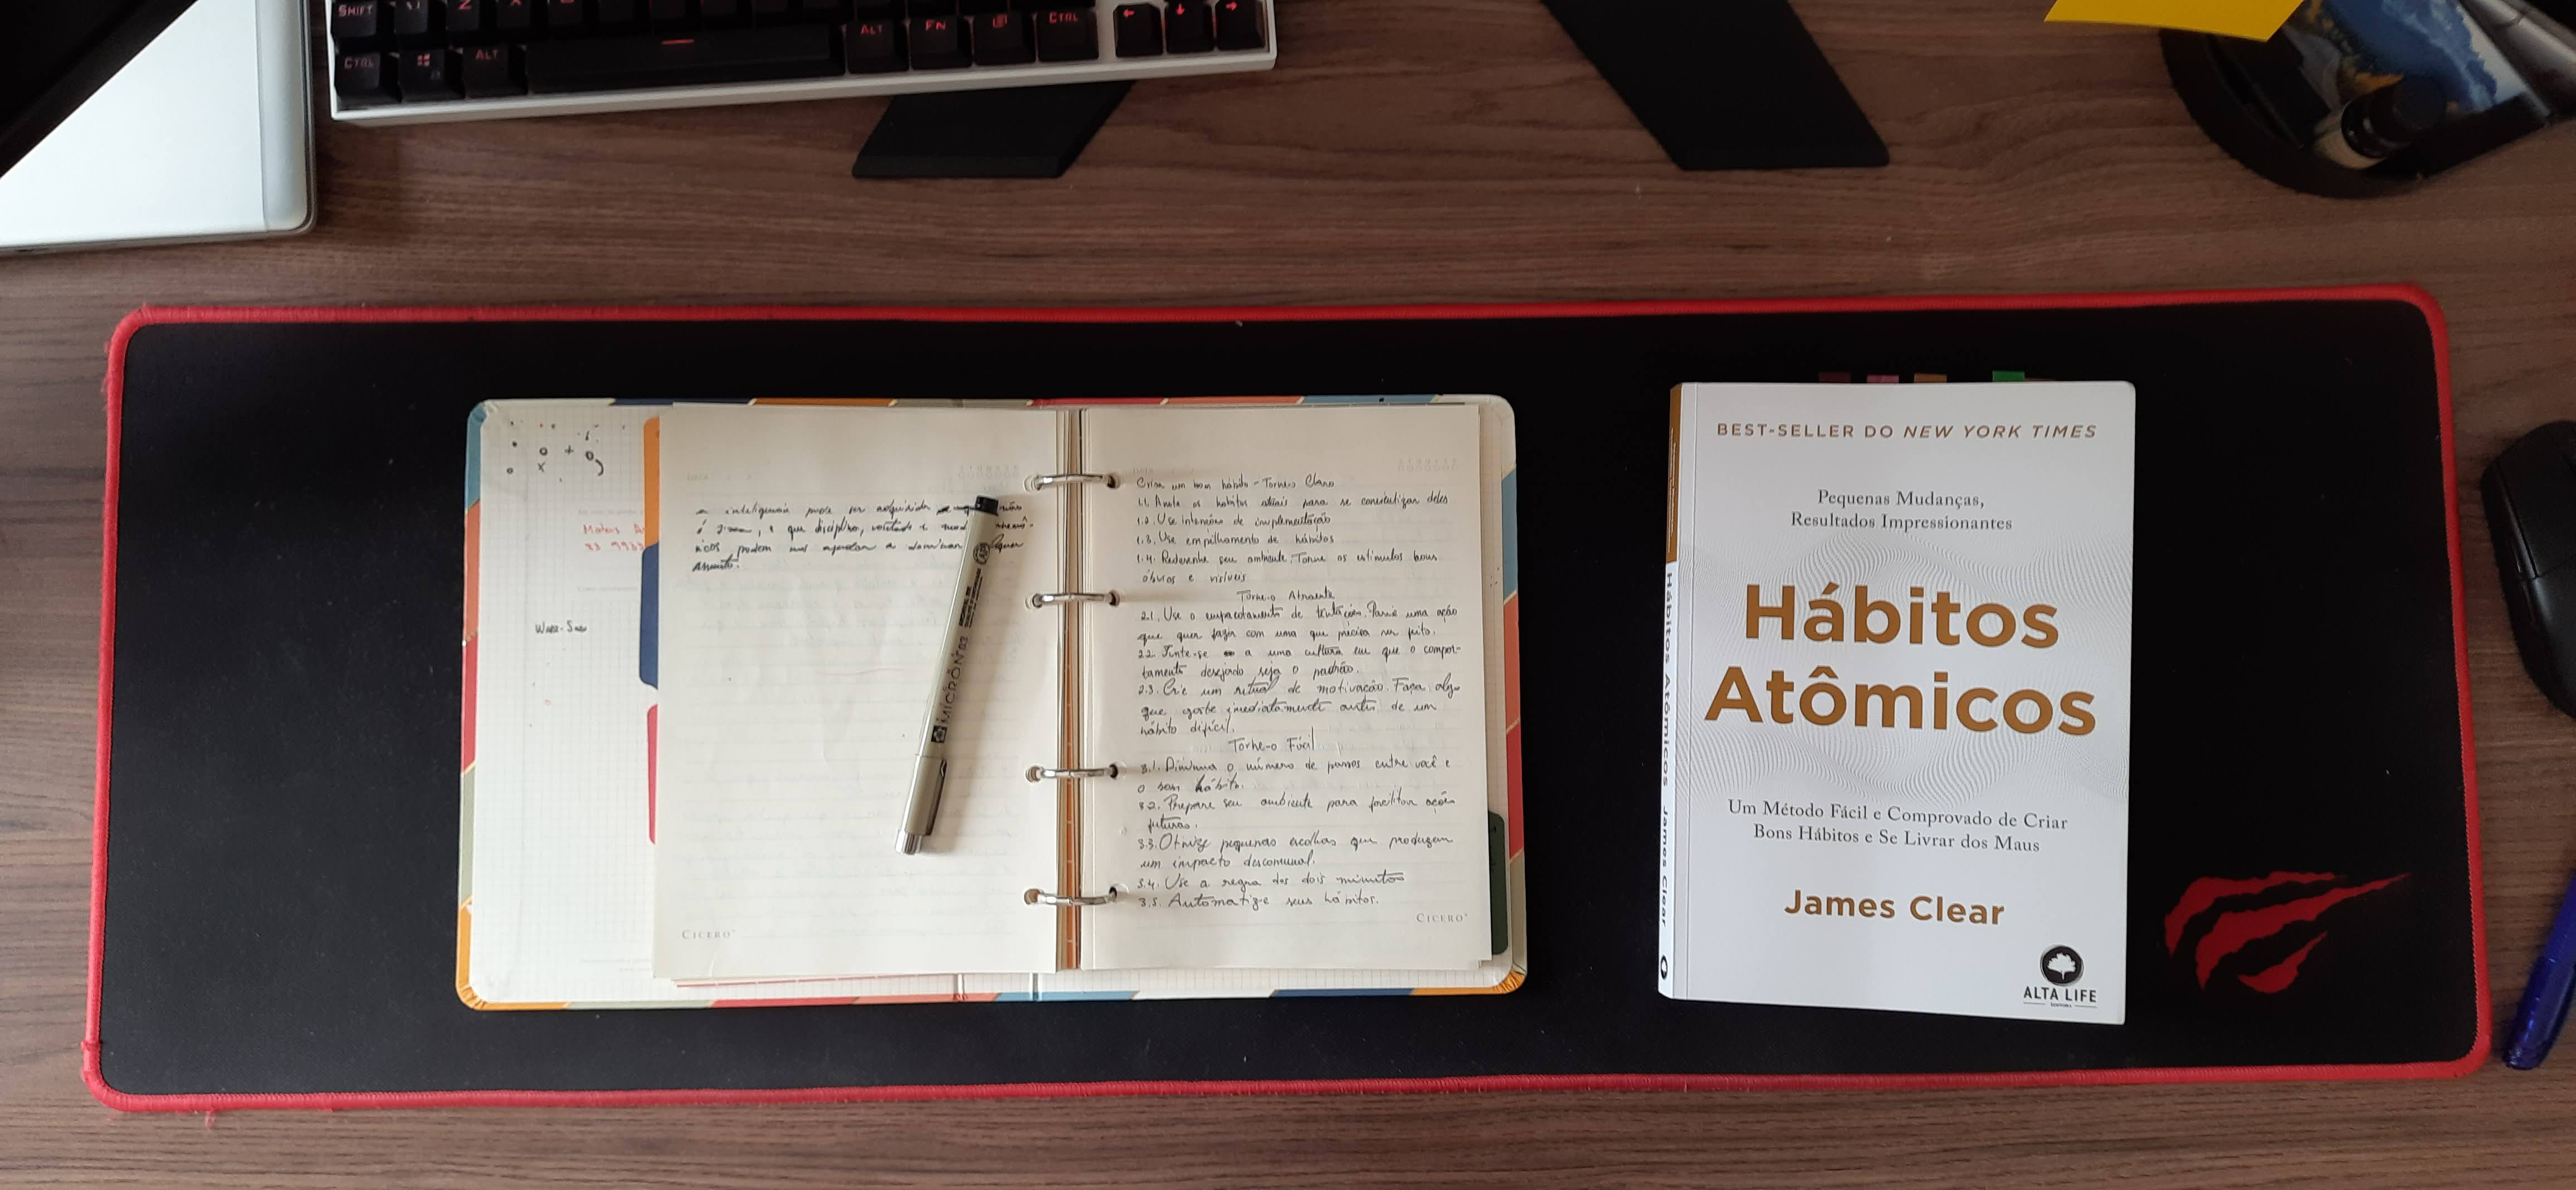 SHIFT
Z
X
CTRL
ALT
ALT
FN
CTRL
a inteligencia pode ser adquirida
é que disciplina, vontade e
nicos podem nos ajudar a dominar
assunto.
Wabi-Sabi
MICRON 03
CICERO
Criar um bom hábito - Torne-o Claro
1.1. Anote os hábitos atuais para se conscientizar deles
1.2. Use intenções de implementação
1.3. Use empilhamento de hábitos
1.4. Redesenhe seu ambiente. Torne os estímulos bons
óbvios e visíveis
Torne-o Atraente
2.1. Use o empacotamento de tentações. Parie uma ação
que quer fazer com uma que precisa ser feito.
2.2. Junte-se a uma cultura em que o compor-
tamento desejado seja o padrão.
2.3. Crie um ritual de motivação. Faça algo
que goste imediatamente antes de um
hábito difícil.
Torne-o Fácil
3.1. Diminua o número de passos entre você e
o bom hábito.
3.2. Prepare seu ambiente para facilitar ações
futuras.
3.3. Otimize pequenas escolhas que produzem
um impacto descomunal.
3.4. Use a regra dos dois minutos
3.5. Automatize seus hábitos.
CICERO
BEST-SELLER DO NEW YORK TIMES
Pequenas Mudanças,
Resultados Impressionantes
Hábitos
Atômicos
Um Método Fácil e Comprovado de Criar
Bons Hábitos e Se Livrar dos Maus
James Clear
ALTA LIFE
EDITORA
Hábitos Atômicos James Clear